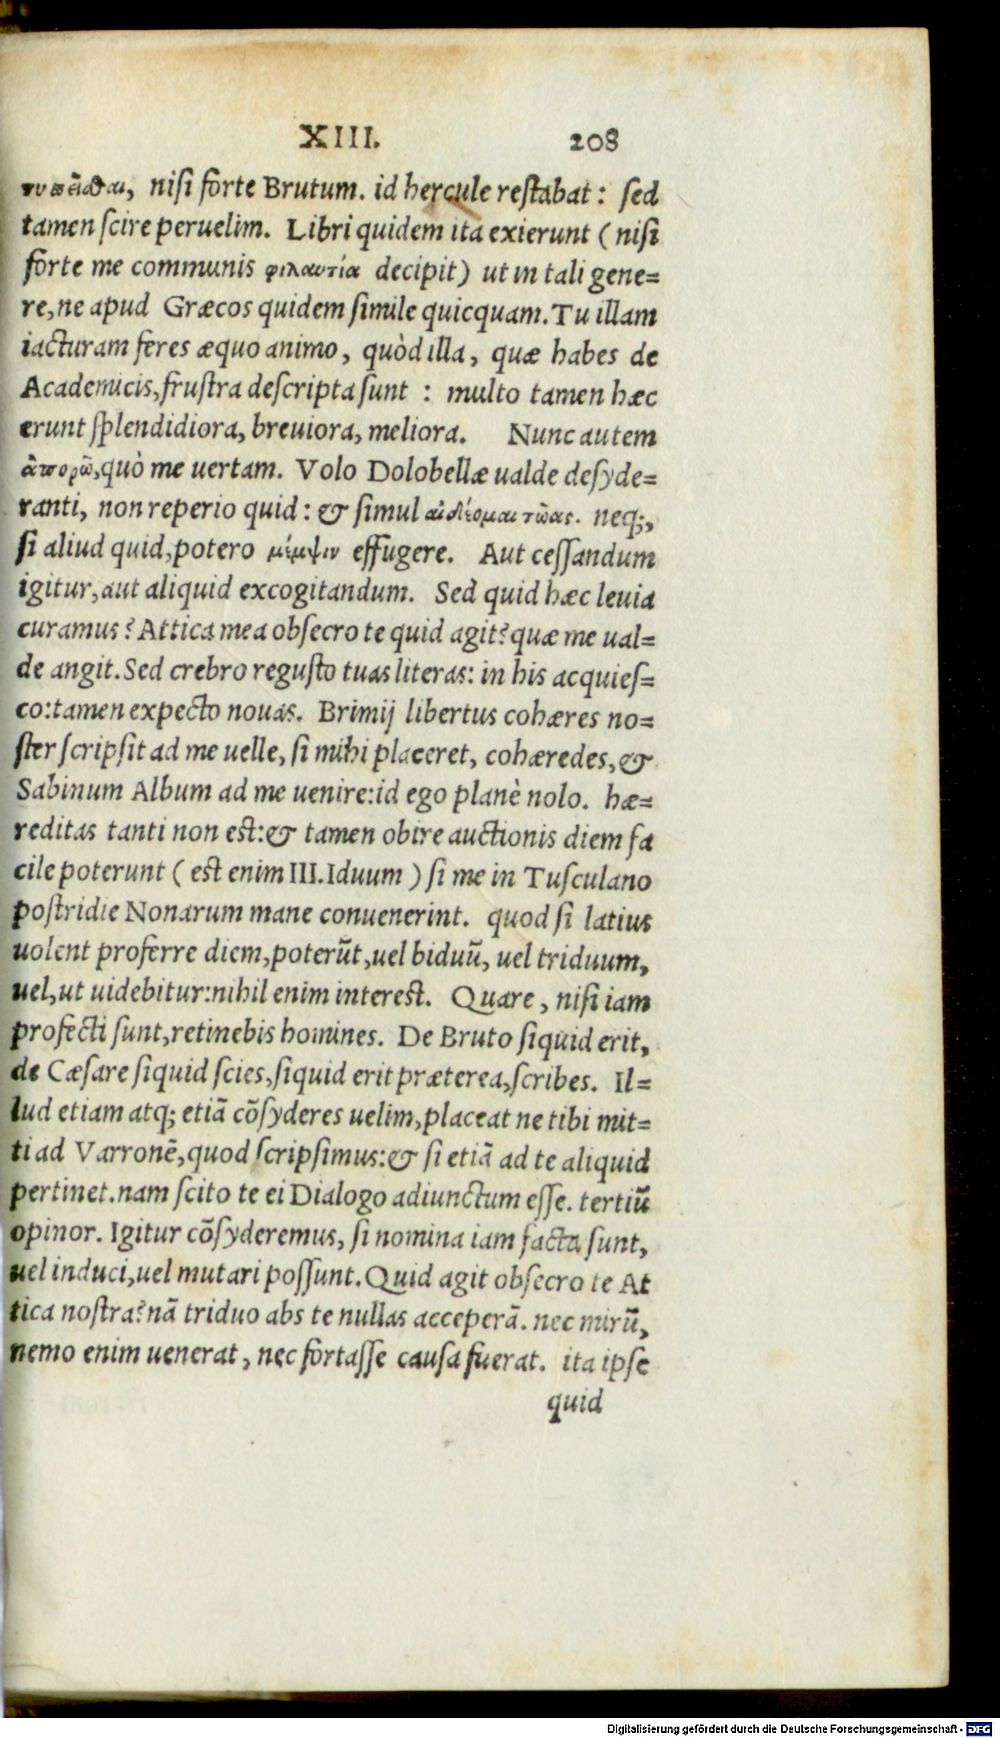 XIII. 208
nisi forte Brutum. id hercule restabat: sed
tamen scire peruelim. Libri quidem ita exierunt (nisi
forte me communis φιλαυτία decipit) ut in tali gene=
re, ne apud Græcos quidem simile quicquam. Tu illam
iacturam feres æquo animo, quòd illa, quæ habes de
Academicis, frustra descripta sunt: multo tamen hæc
erunt splendidiora, breuiora, meliora. Nunc autem
ἀπορῶ, quò me uertam. Volo Dolobellæ ualde desyde=
ranti, non reperio quid: & simul αἰδέομαι τρῶας. neq;,
si aliud quid, potero μέμψιν effugere. Aut cessandum
igitur, aut aliquid excogitandum. Sed quid hæc leuia
curamus? Attica mea obsecro te quid agit? quæ me ual=
de angit. Sed crebro regusto tuas literas: in his acquies=
co: tamen expecto nouas. Brimij libertus cohæres no=
ster scripsit ad me uelle, si mihi placeret, cohæredes, &
Sabinum Album ad me uenire: id ego planè nolo. hæ=
reditas tanti non est: & tamen obire auctionis diem fa
cile poterunt (est enim III. Iduum) si me in Tusculano
postridie Nonarum mane conuenerint. quod si latius
uolent proferre diem, poterũt, uel biduũ, uel triduum,
uel, ut uidebitur: nihil enim interest. Quare, nisi iam
profecti sunt, retinebis homines. De Bruto siquid erit,
de Cæsare siquid scies, siquid erit præterea, scribes. Il=
lud etiam atq; etiã cõsyderes uelim, placeat ne tibi mit=
ti ad Varronẽ, quod scripsimus: & si etiã ad te aliquid
pertinet. nam scito te ei Dialogo adiunctum esse. tertiũ
opinor. Igitur cõsyderemus, si nomina iam facta sunt,
uel induci, uel mutari possunt. Quid agit obsecro te At
tica nostra? nã triduo abs te nullas acceperã. nec mirũ,
nemo enim uenerat, nec fortasse causa fuerat. ita ipse
quid
Digitalisierung gefördert durch die Deutsche Forschungsgemeinschaft - DFG